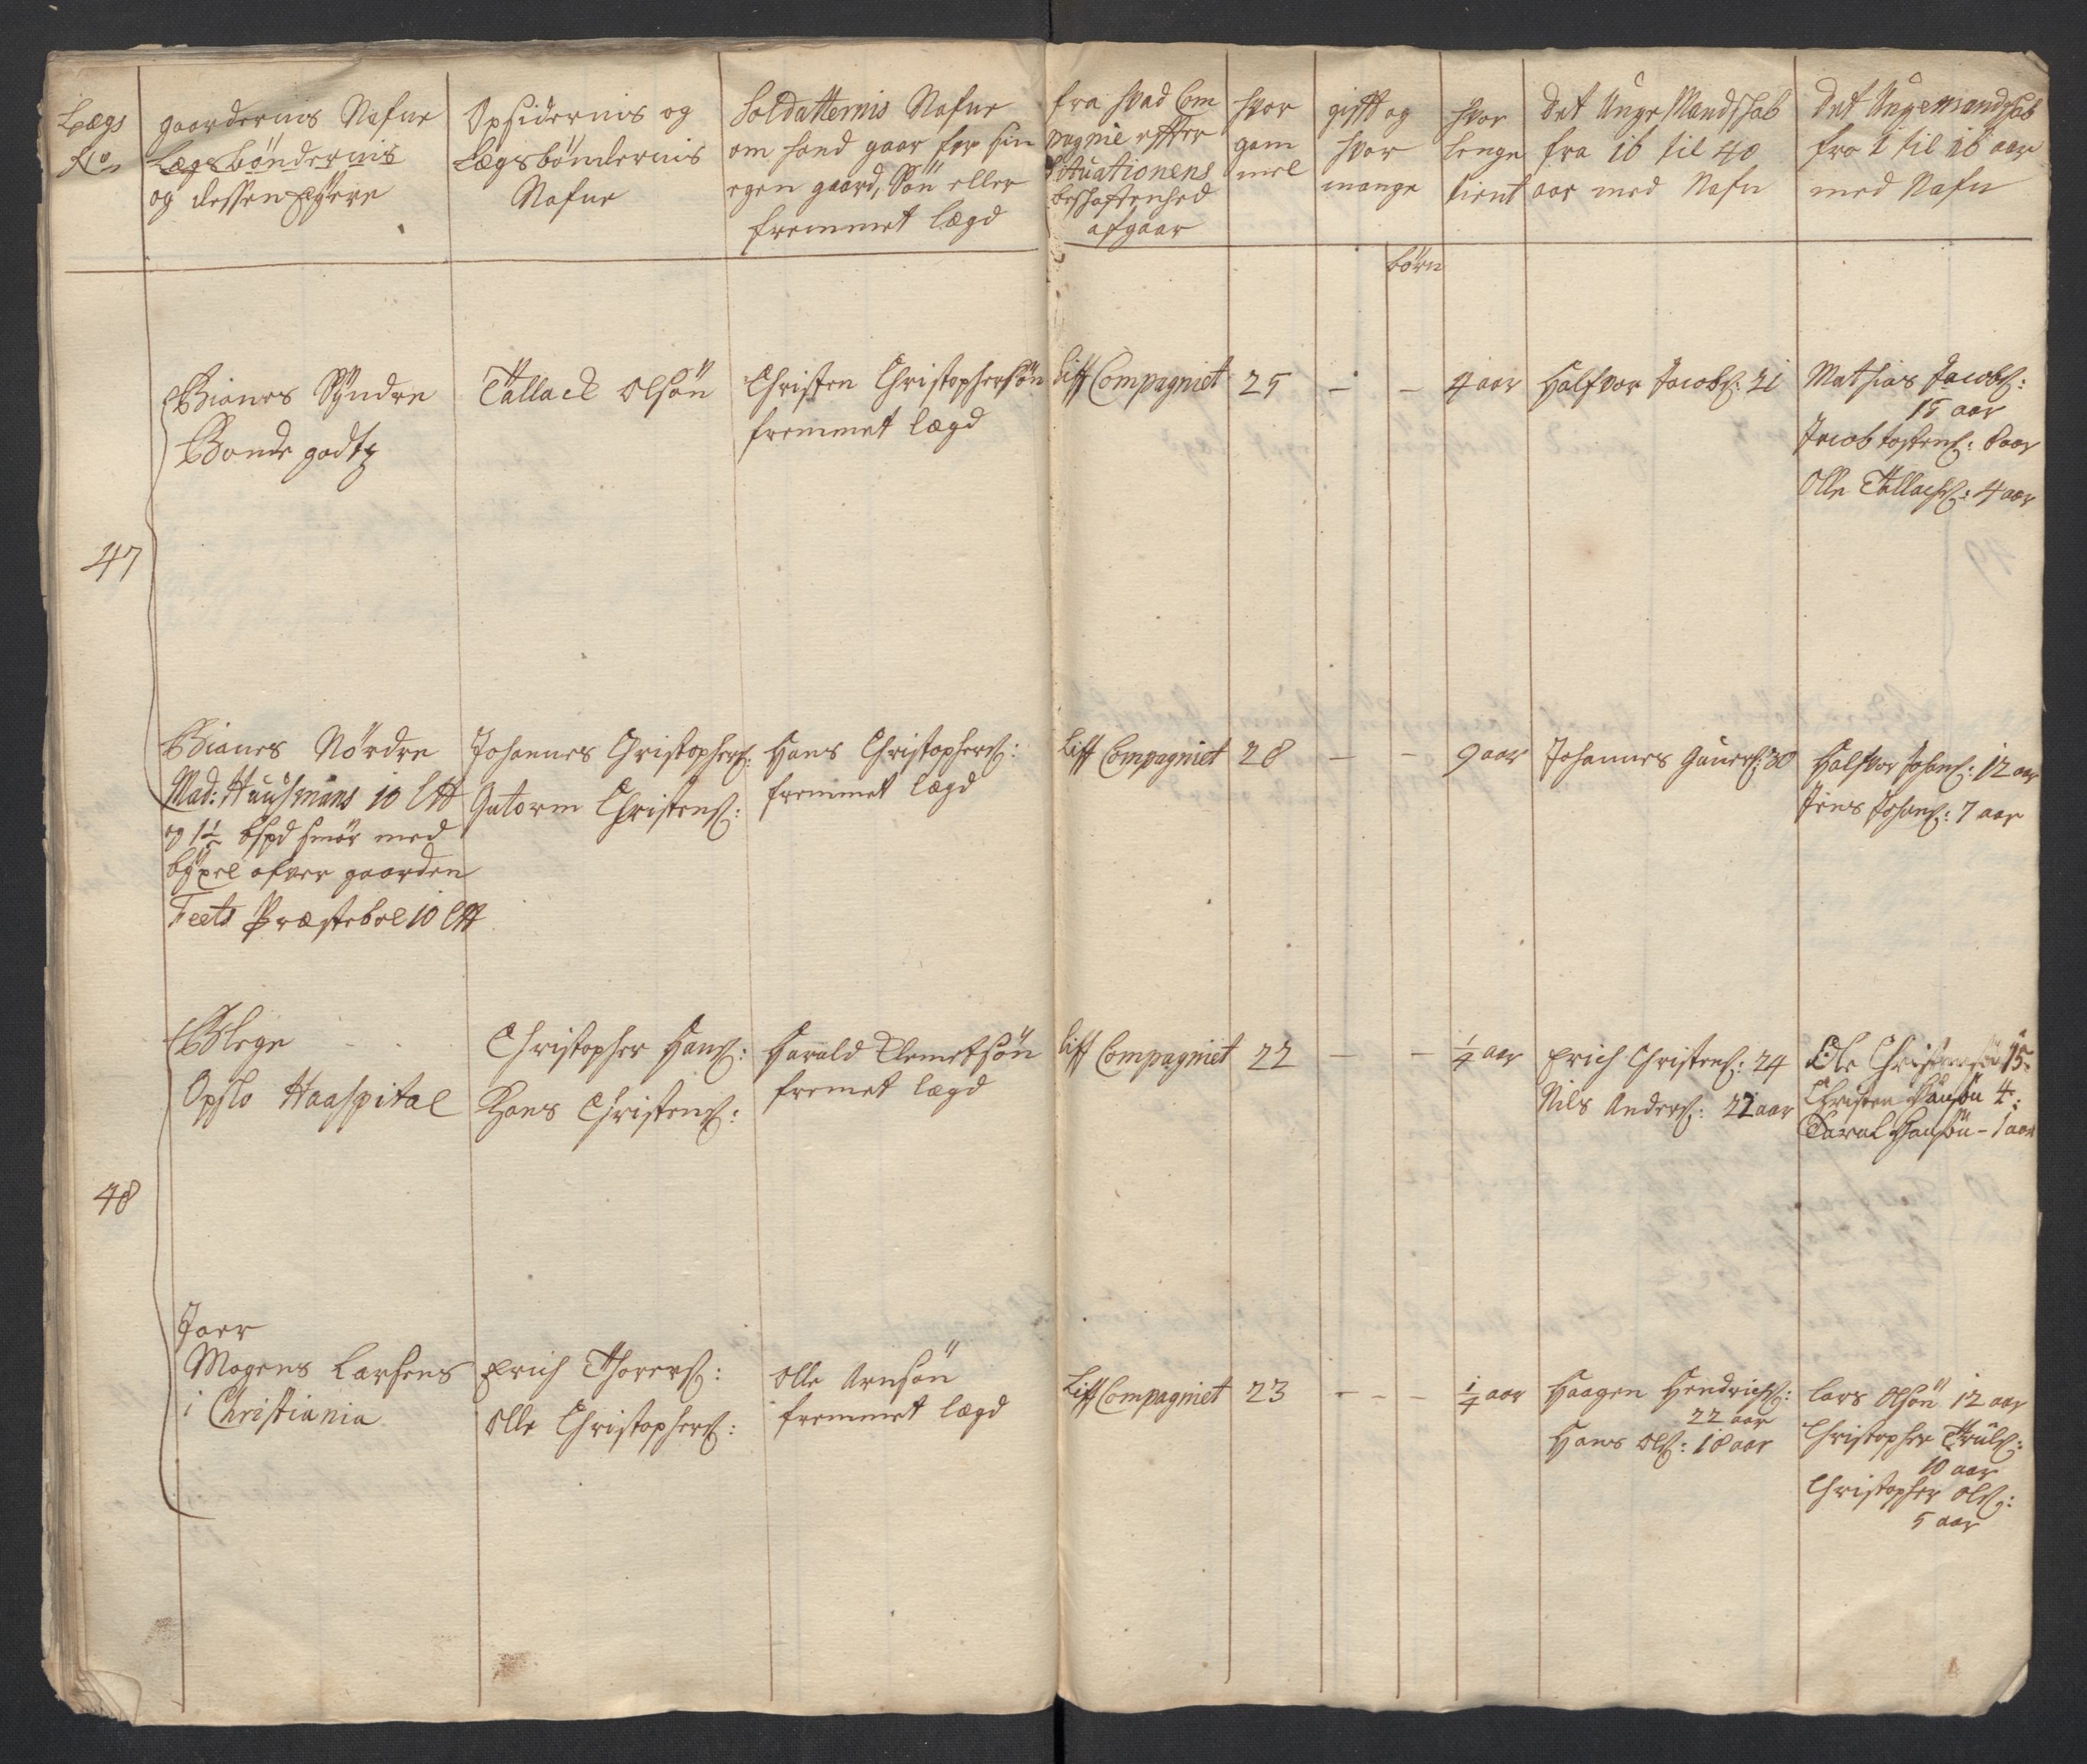 Lægs
No
gaardernis Nafne
Lægsbøndernis
og dessen Eyere
Opsidernis og
Lægsbøndernis
Nafne
Soldatternis Nafne
om hand gaar for sin
egen gaard, Søn eller
fremmet lægd
fra hvad Com
pagnie effter
Situationens
beskaffenhed
afgaar
hvor
gam
mel
gifft og
hvor
mange
børn
hvor
lenge
tient
Det Unge Mandskab
fra 16 til 40
aar med Nafn
Det Unge Mandskab
fra 1 til 16 aar
med Nafn
47
Bianes Syndre
Bonde godtz
Tallack Olsøn
Christen Christophersøn
fremmet lægd
Liff Compagniet 25 — — 4 aar
Halfvor Jacobs: 21
Mathias Jacobs:
15 aar
Jacob Tostens: 8 aar
Olle Tallachs: 4 aar
Bianes Nørdre
Mad: Huusmans 10 L℔
og 1½ bspd smør med
bÿxel ofver gaarden
Feets Præstebol 10 L℔
Johannes Christophers:
Gutorm Christens:
Hans Christophers:
fremmet lægd
Liff Compagniet 28 — — 9 aar
Johannes Guners: 30
Halfvor Johans: 12 aar
Jens Johans: 7 aar
48
Blege
Opslo Haaspital
Christopher Hans:
Hans Christens:
Harald Clemetsøn
fremet lægd
Liff Compagniet 22 — — ¼ aar
Erich Christens: 24
Nils Anders: 22 aar
Ole 15
Christen Hansøn 4:
Taral Hansøn - 1 aar
Joer
Mogens Larsens
i Christiania
Erich Thorers:
Olle Christophers:
Olle Arnsøn
fremmet lægd
Liff Compagniet 23 — — — ¼ aar
Haagen Hendrichs:
22 aar
Hans Ols: 18 aar
Lars Olsøn 12 aar
Christopher Truls:
10 aar
Christopher Ols:
5 aar